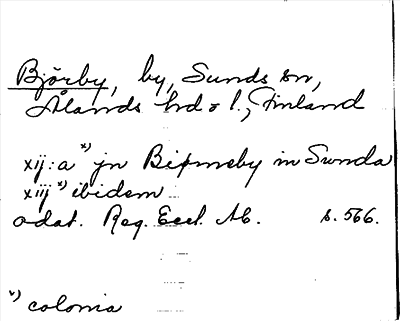 Björby, by, Sunds sn,
Ålands hd o l., Finland
xij:a x) jn Biærnsby in Sunda
xiij x) ibidem
odat. Reg. Eccl. Ab. s. 566.
x) colonia